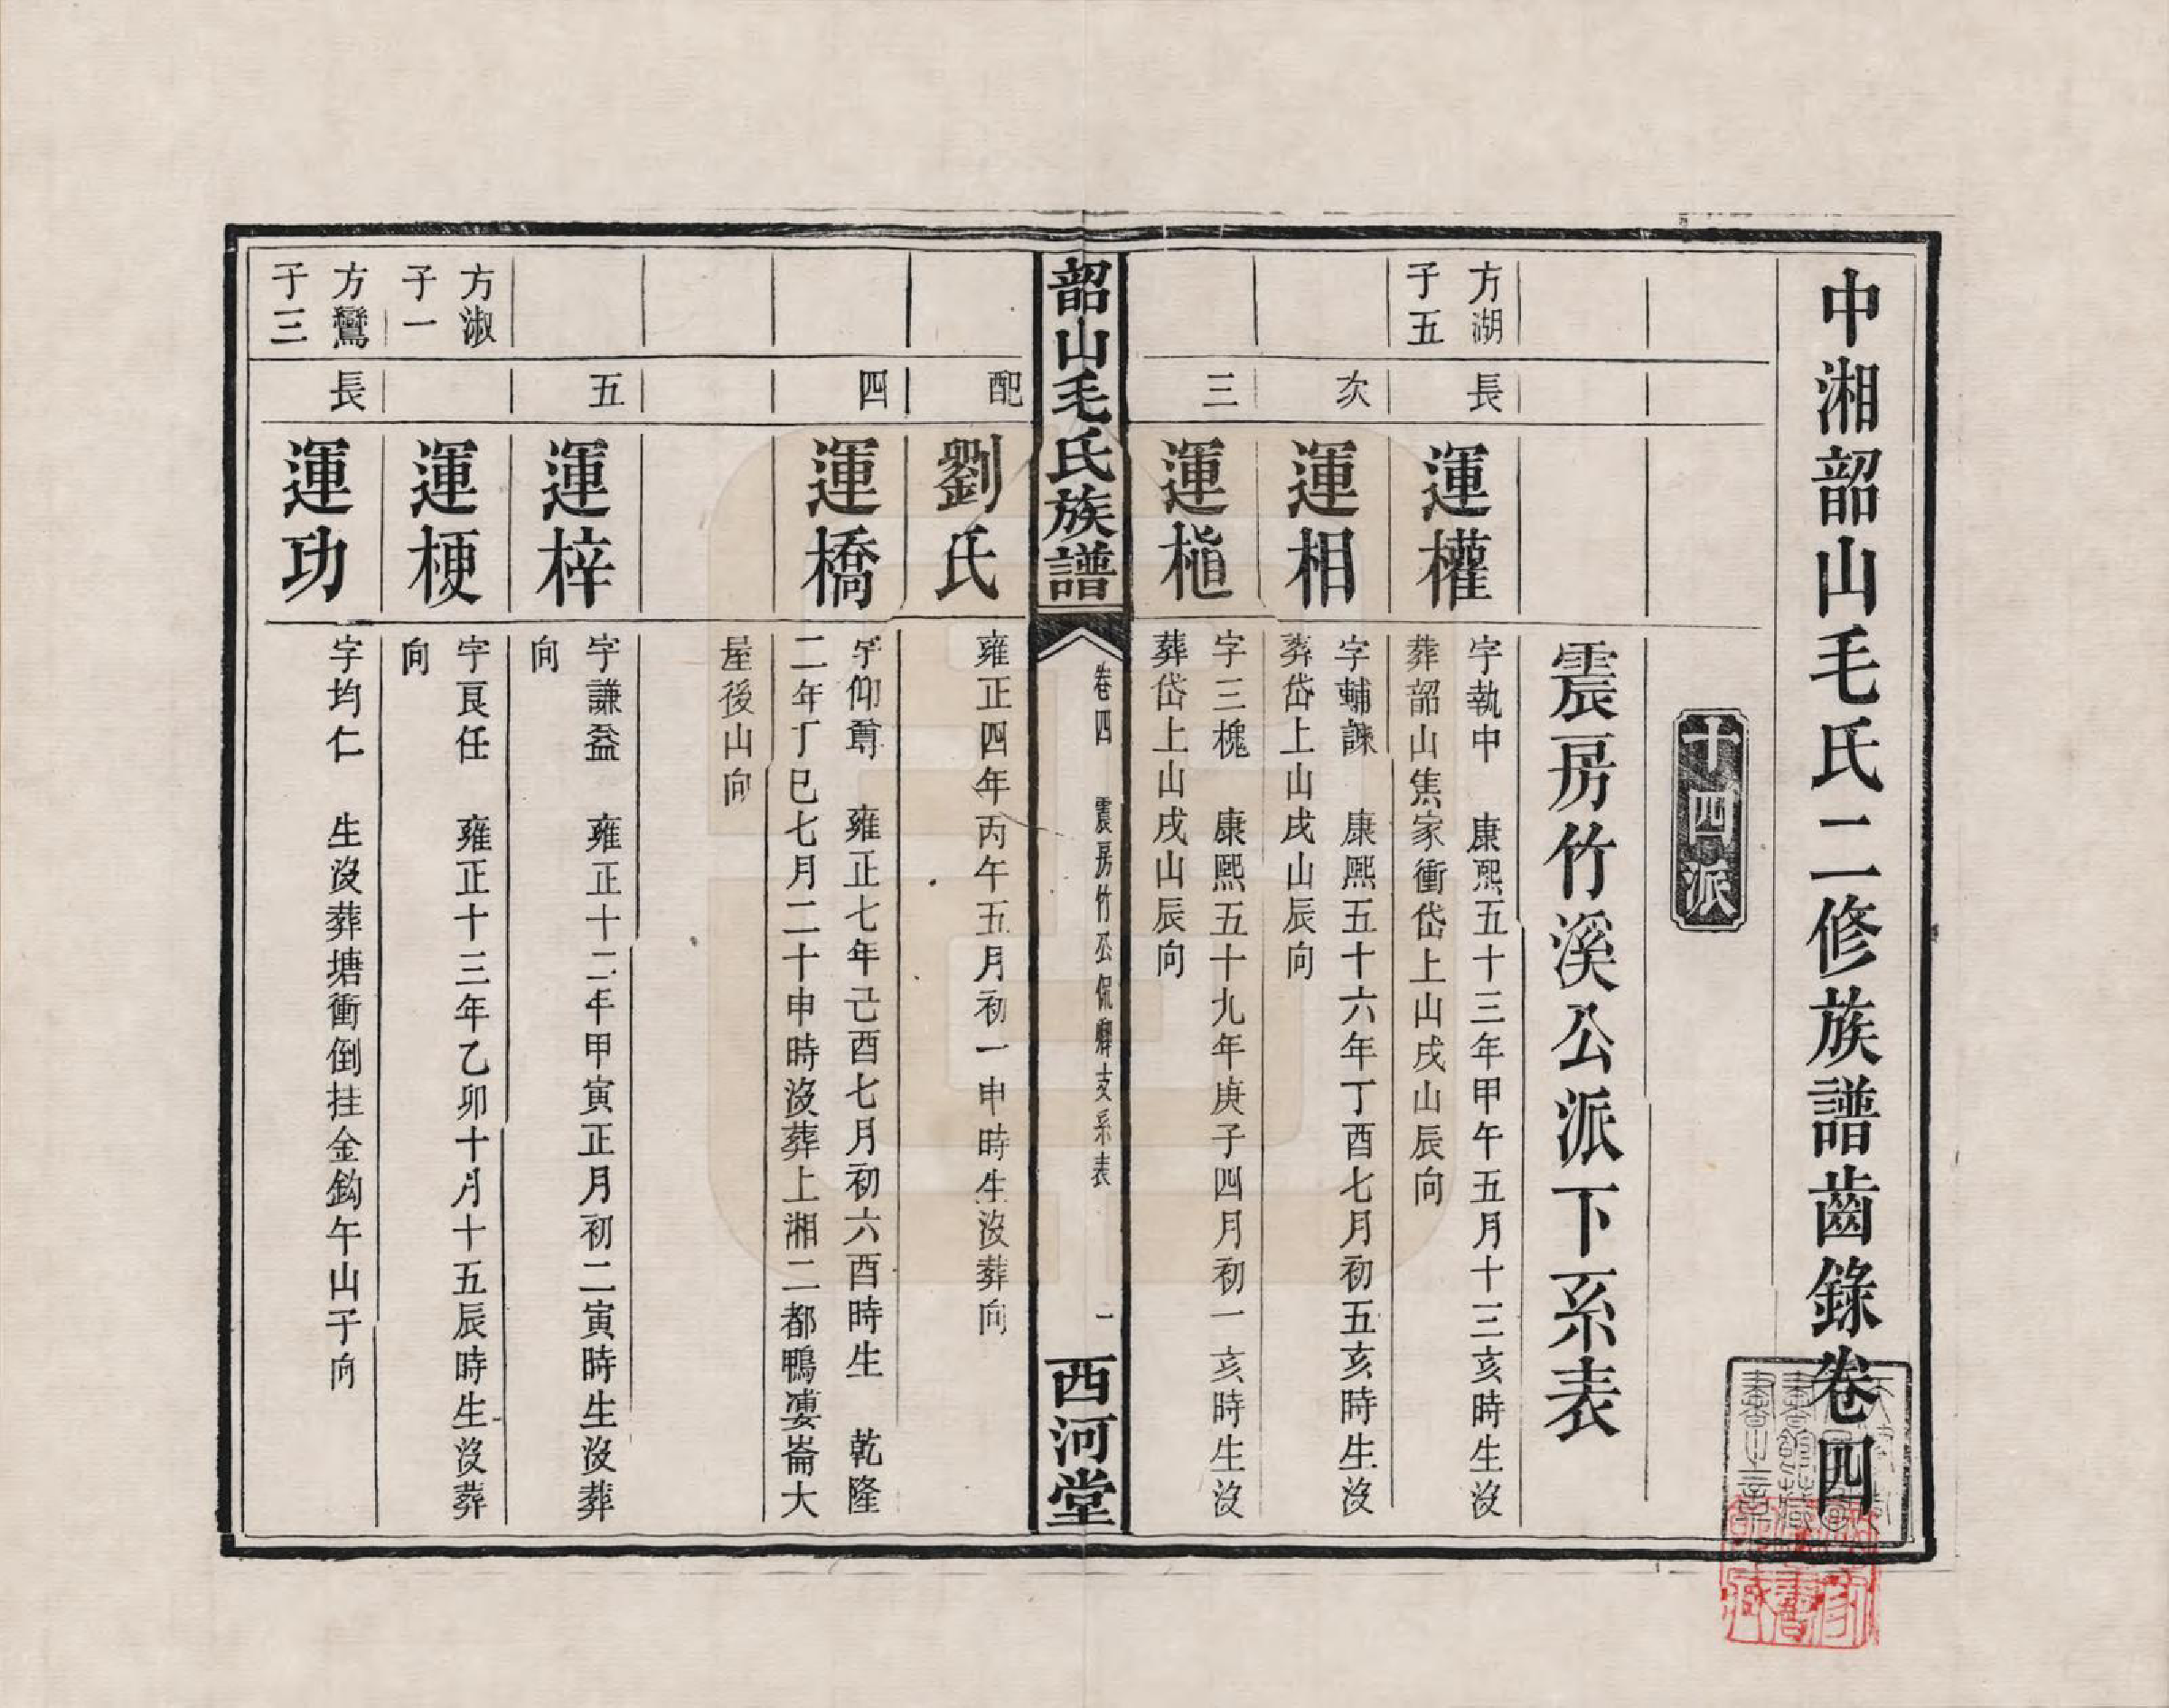 中湘韶山毛氏二修族譜齒錄卷四
十四派
震房竹溪公派下系表
方湖
子五
長
運權
字執中　康熙五十三年甲午五月十三亥時生沒
葬韶山焦家衝岱上山戌山辰向
次
運相
字輔諫　康熙五十六年丁酉七月初五亥時生沒
葬岱上山戌山辰向
三
運楦
字三槐　康熙五十九年庚子四月初一亥時生沒
葬岱上山戌山辰向
韶山毛氏族譜
卷四　震房竹公侃釋支系表　一
西河堂
配
劉氏
雍正四年丙午五月初一申時生沒葬向
四
運橋
字仰尊　雍正七年己酉七月初六酉時生　乾隆
二年丁巳七月二十申時沒葬上湘二都鴨婁崙大
屋後山向
五
運梓
字謙益　雍正十二年甲寅正月初二寅時生沒葬
向
方淑
子一
運梗
字良任　雍正十三年乙卯十月十五辰時生沒葬
向
方鸞
子三
長
運功
字均仁　生沒葬塘衝倒挂金鈎午山子向